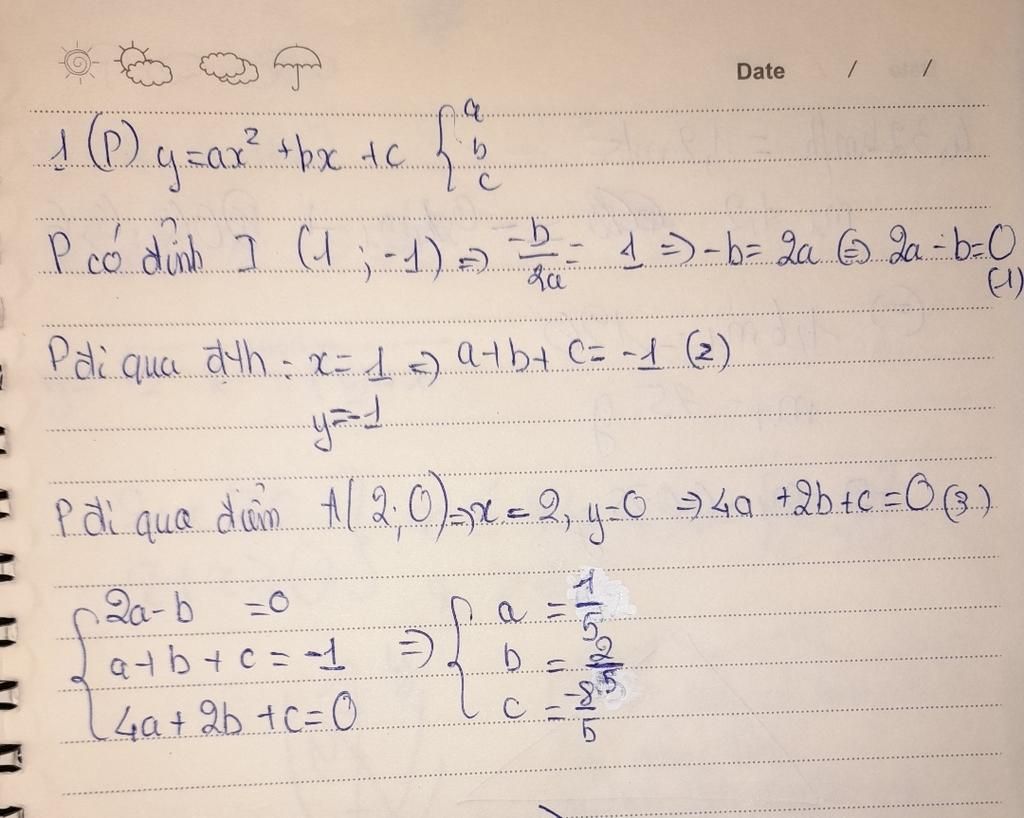 Date / /
1 (P) y=ax² +bx +c { a b c
P có đỉnh I (1 ; -1) => -b/2a = 1 => -b = 2a <=> 2a - b = 0 (1)
P đi qua : x = 1 => a+b+ c = -1 (2)
y=-1
P đi qua điểm A(2;0) => x = 2, y=0 => 4a +2b+c =0 (3)
{ 2a-b =0 => { a = 1/5
a+b+c = -1 b = 2/5
4a+2b+c=0 c = -8/5